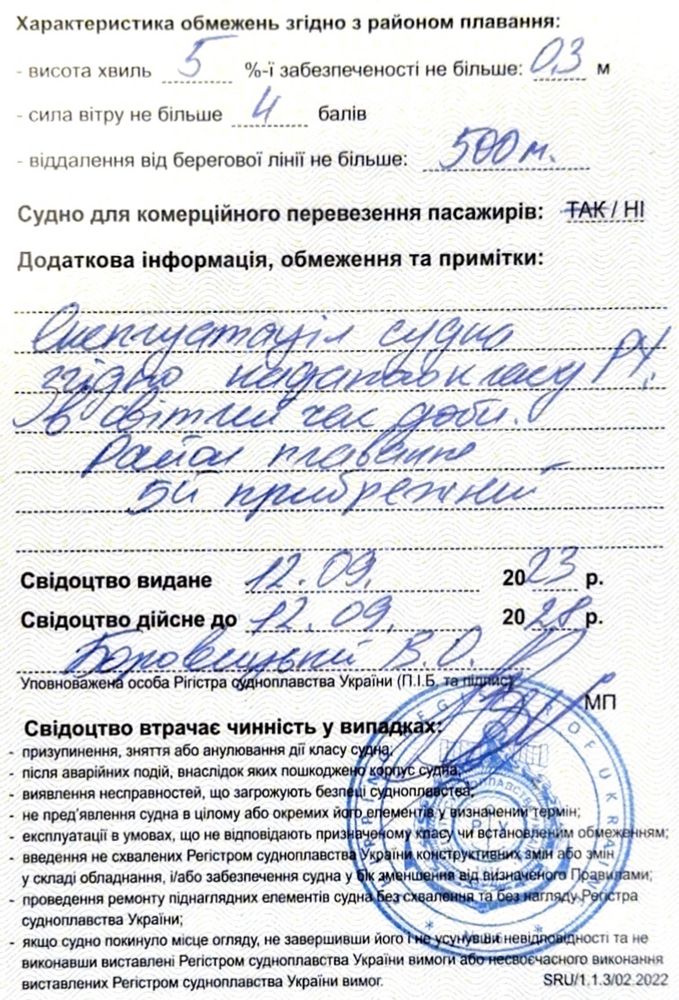 Характеристика обмежень згідно з районом плавання:
- висота хвиль 5 %-ї забезпеченості не більше: 0,3 м
- сила вітру не більше 4 балів
- віддалення від берегової лінії не більше: 500 м.
Судно для комерційного перевезення пасажирів: ТАК / НІ
Додаткова інформація, обмеження та примітки:
Експлуатація судна
згідно наданого класу РУ.
в світлий час доби.
Район плавання
5й прибрежний
Свідоцтво видане 12.09. 2023 р.
Свідоцтво дійсне до 12.09. 2028 р.
Боровицький В.О.
Уповноважена особа Рігістра судноплавства України (П.І.Б. та підпис)
МП
Свідоцтво втрачає чинність у випадках:
- призупинення, зняття або анулювання дії класу судна;
- після аварійних подій, внаслідок яких пошкоджено корпус судна;
- виявлення несправностей, що загрожують безпеці судноплавства;
- не пред’явлення судна в цілому або окремих його елементів у визначений термін;
- експлуатації в умовах, що не відповідають призначеному класу чи встановленим обмеженням;
- введення не схвалених Регістром судноплавства України конструктивних змін або змін
у складі обладнання, і/або забезпечення судна у бік зменшення від визначеного Правилами;
- проведення ремонту піднаглядних елементів судна без схвалення та без нагляду Регістра
судноплавства України;
- якщо судно покинуло місце огляду, не завершивши його і не усунувши невідповідності та не
виконавши виставлені Регістром судноплавства України вимоги або несвоєчасного виконання
виставлених Регістром судноплавства України вимог.
SRU/1.1.3/02.2022